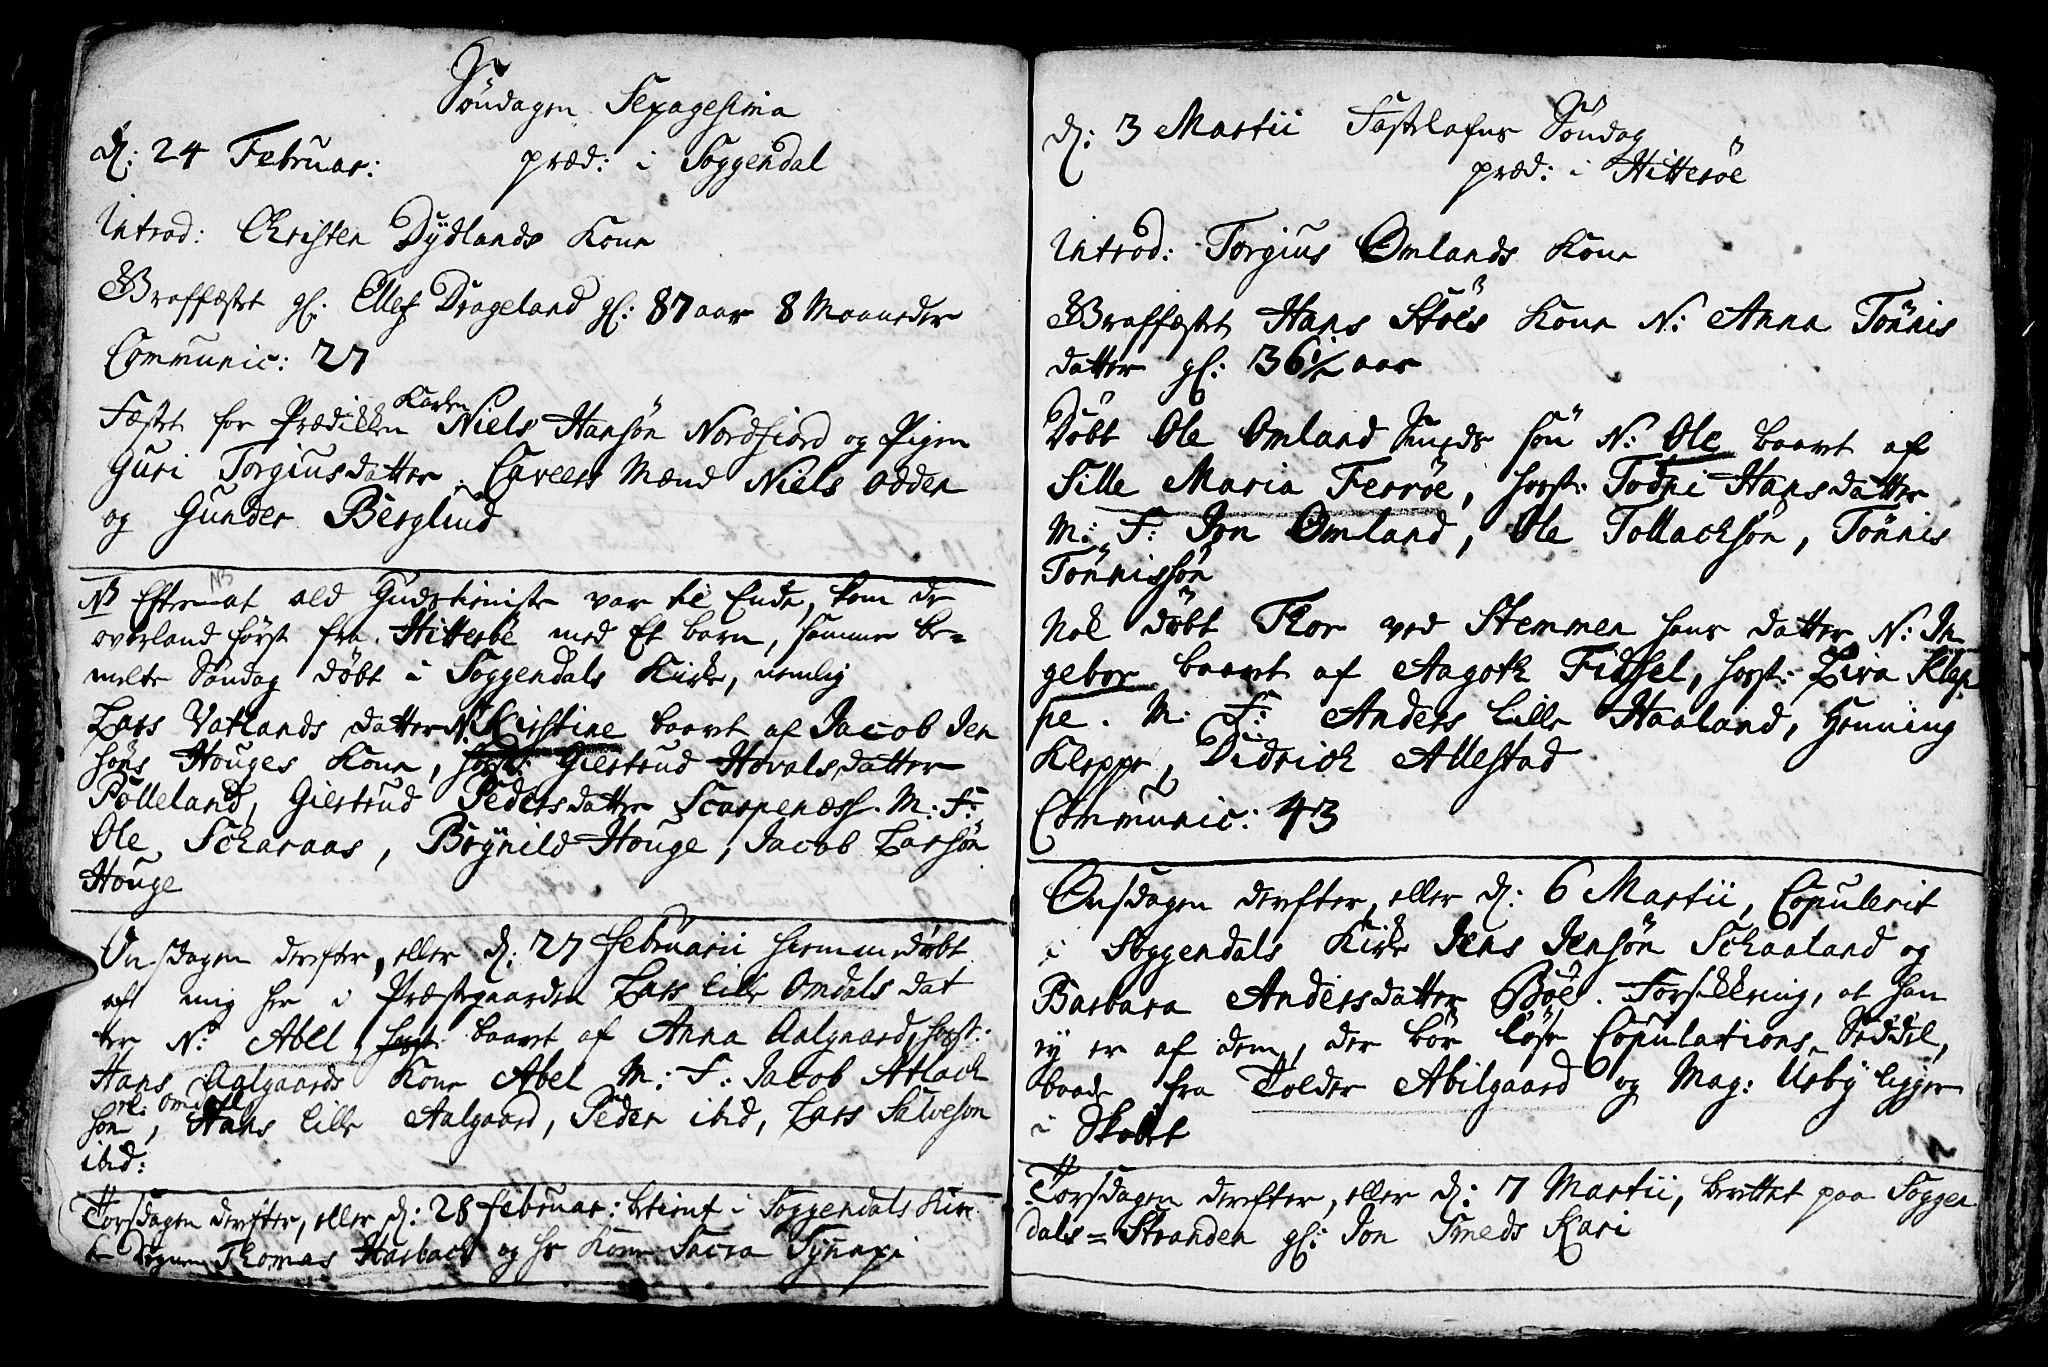 Søndagen Sexagesima
d: 24 Februar: præd: i Soggendal
Introd: Christen Dydlands Kone
Graffæstet gl: Ellef Drageland gl: 87 aar 8 Maaneder
Communic: 27
Fæstet for Prædiken Karlen Niels Hansøn Nordfiord og Pigen
Guri Torgiusdatter. Caveers Mænd Niels Odden
og Gunder Berglind
NB Efter at ald Gudstieniste var til Ende, kom de
overland først fra Hitterøe med Et barn, samme be=
melte Søndag døbt i Soggendals Kirke, nemlig
Lars Vatlands datter N: Kirstine baaret af Jacob Jen
søns Houges Kone, Giertrud Hovalsdatter
Pølleland, Giertrud Pedersdatter Scarpenæss. M: F:
Ole Scharaas, Brynild Houge, Jacob Larsøn
Houge
Onsdagen derefter, eller d: 27 Februarii hiemmedøbt
aff mig her i Præstegaarden Lars Lille Omdals dat
ter N: Abel baaret af Anna Aalgaard, frst:
Hans Aalgaards Kone Abel M: F: Jacob Atlach
søn Omdal, Hans Lille Aalgaard, Peder ibid, Lars Salveson
ibid:
Torsdagen derefter, eller d: 28 Februar: betient i Soggendals Kir
ke Thomas Harbach og hs Kone Sacra Synaxi
d: 3 Martii Fastelafns Søndag
præd: i Hitterøe
Introd: Torgius Omlands Kone
Graffæstet Hans Støes Kone N: Anna Tønnis
datter gl: 36½ aar
Døbt Ole Omland Smeds søn N: Ole baaret af
Sille Maria Ferrøe, frst: Todni Hansdatter
M: F: Jon Omland, Ole Tollachsøn, Tønnis
Tønnissøn
Nok døbt Thor ved Stemmen hans datter N: In
gebor baaret af Aagoth Fidsel, frst: Zira Klep
pe. M: F: Anders Lille Haaland, Henning
Kleppe, Didrich Allestad
Communic: 43
Onsdagen derefter, eller d: 6 Martii, Copulerit
i Soggendals Kirke Jens Jensøn Schaaland og
Barbara Andersdatter Bøe. Forsikkring, at han
ey er af dem, der bør løse Copulations Seddel,
baade fra Tolder Abilgaard og Mag: Usby ligger
i Skabet
Torsdagen derefter, eller d: 7 Martii, berettet paa Soggen
dals=Stranden gl: Jon Smeds Kari